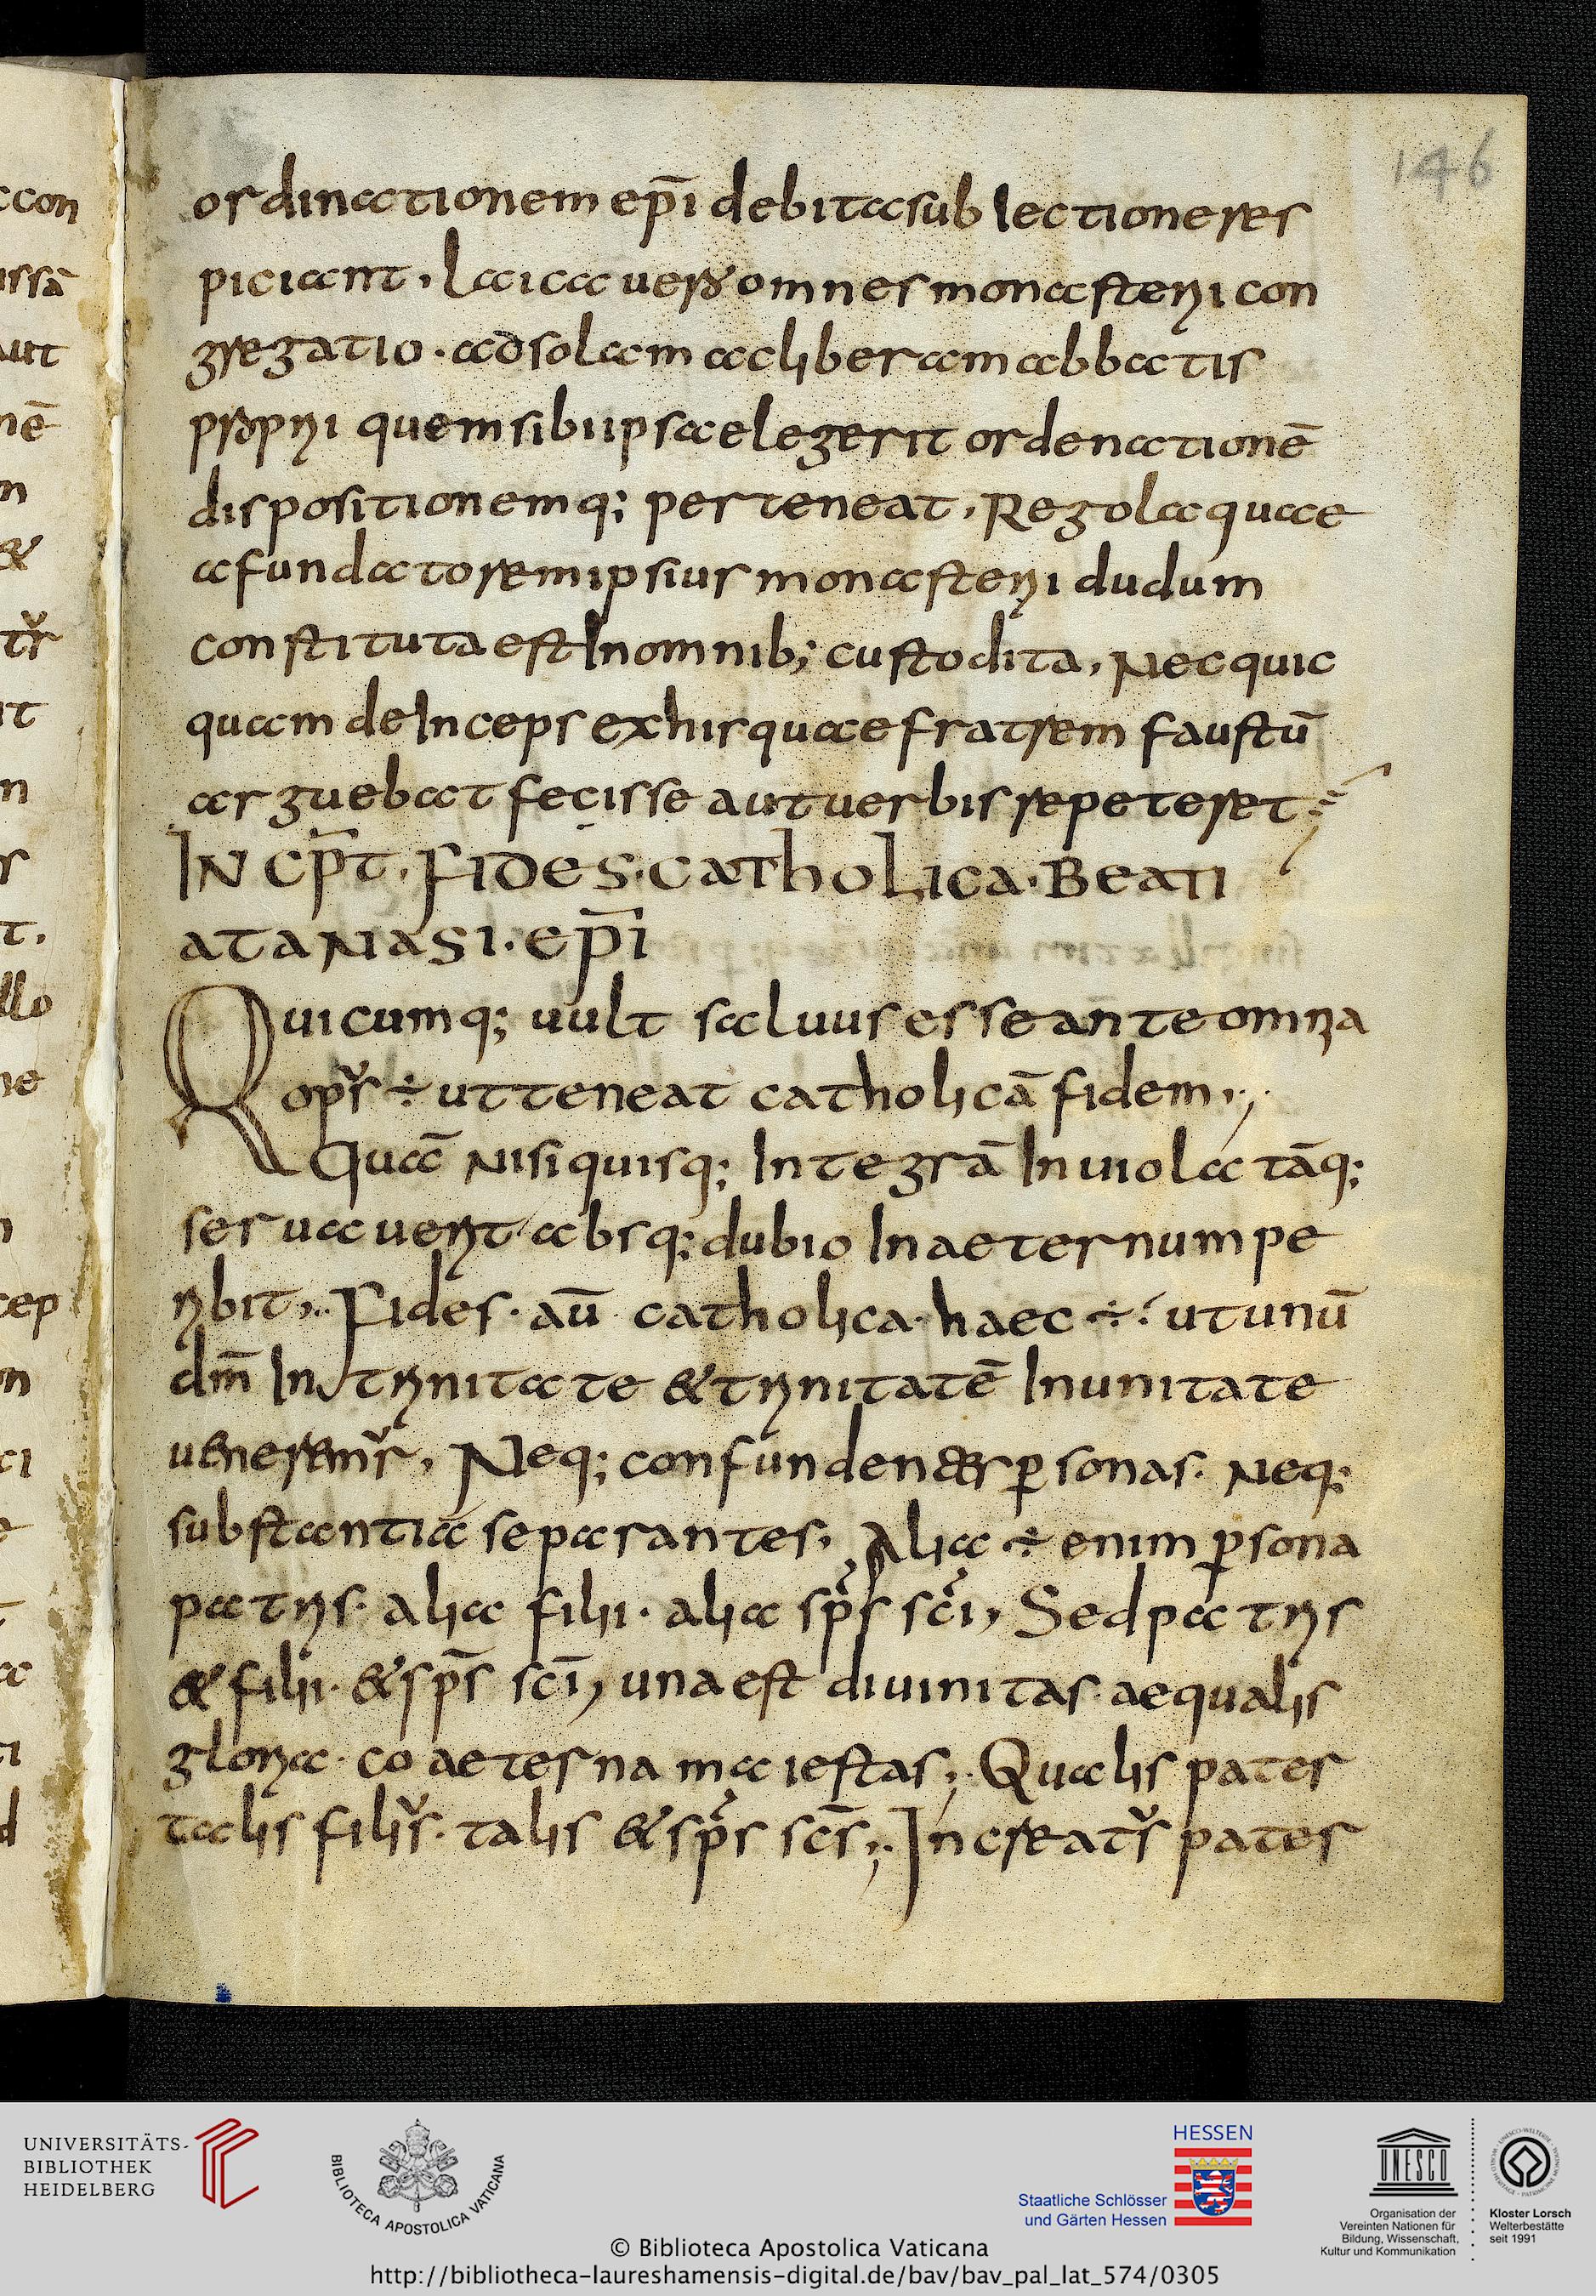 146
ordinationem ep̄i debita sub lectione res
piciant, laica uero omnes monasterii con
gregatio · ad solam ac liberam abbatis
proprii quem sibi ipsa elegerit ordenationē
dispositionemq; perteneat, Regola quae
a fundatorem ipsius monasterii dudum
constituta est In omnib; custodita, Nec quic
quam deInceps ex his quae fratrem faustū
arguebat fecisse aut uerbis repeteret
INCP̄T. FIDES. CATHOLICA. BEATI
ATANASI. EP̄I
Quicumq; uult saluus esse ante omnia
opꝰs ÷ ut teneat catholicā fidem,
Quā Nisi quisq; Integrā Inuiolatāq;
seruauerit absq; dubio In aeternum pe
ribit, Fides · aū catholica · haec ÷ ut unū
dm̄ In trinitate & trinitatē In unitate
ueneremꝰr, Neq; confundentes ꝑsonas. Neq;
substantia separantes, Alia ÷ enim ꝑsona
patris · alia filii · alia sp̄s sc̄i, Sed patris
& filii · & sp̄s sc̄i, una est diuinitas · aequalis
gloria · coaeterna maiestas, Qualis pater
talis filiꝰs · talis & sp̄s sc̄s, Increatꝰs pater
ccon
ussā
aut
nē
m
&
t
n
r
t.
llo
ne
cep
on
ci
cc
ti
d
UNIVERSITÄTS-
BIBLIOTHEK
HEIDELBERG
BIBLIOTECA APOSTOLICA VATICANA
HESSEN
Staatliche Schlösser
und Gärten Hessen
UNESCO
Organisation der
Vereinten Nationen für
Bildung, Wissenschaft,
Kultur und Kommunikation
Kloster Lorsch
Welterbestätte
seit 1991
© Biblioteca Apostolica Vaticana
http://bibliotheca-laureshamensis-digital.de/bav/bav_pal_lat_574/0305